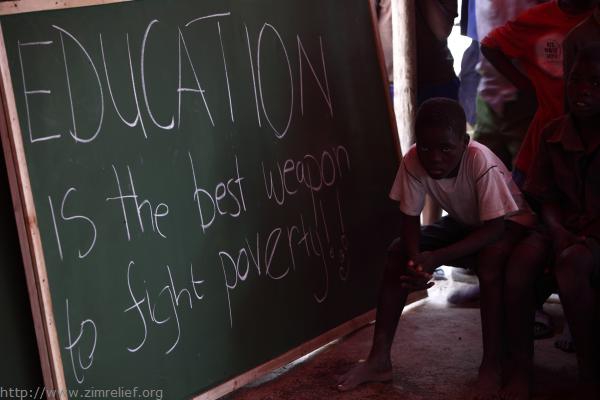 EDUCATION
is the best weapon
to fight poverty!!
http://www.zimrelief.org